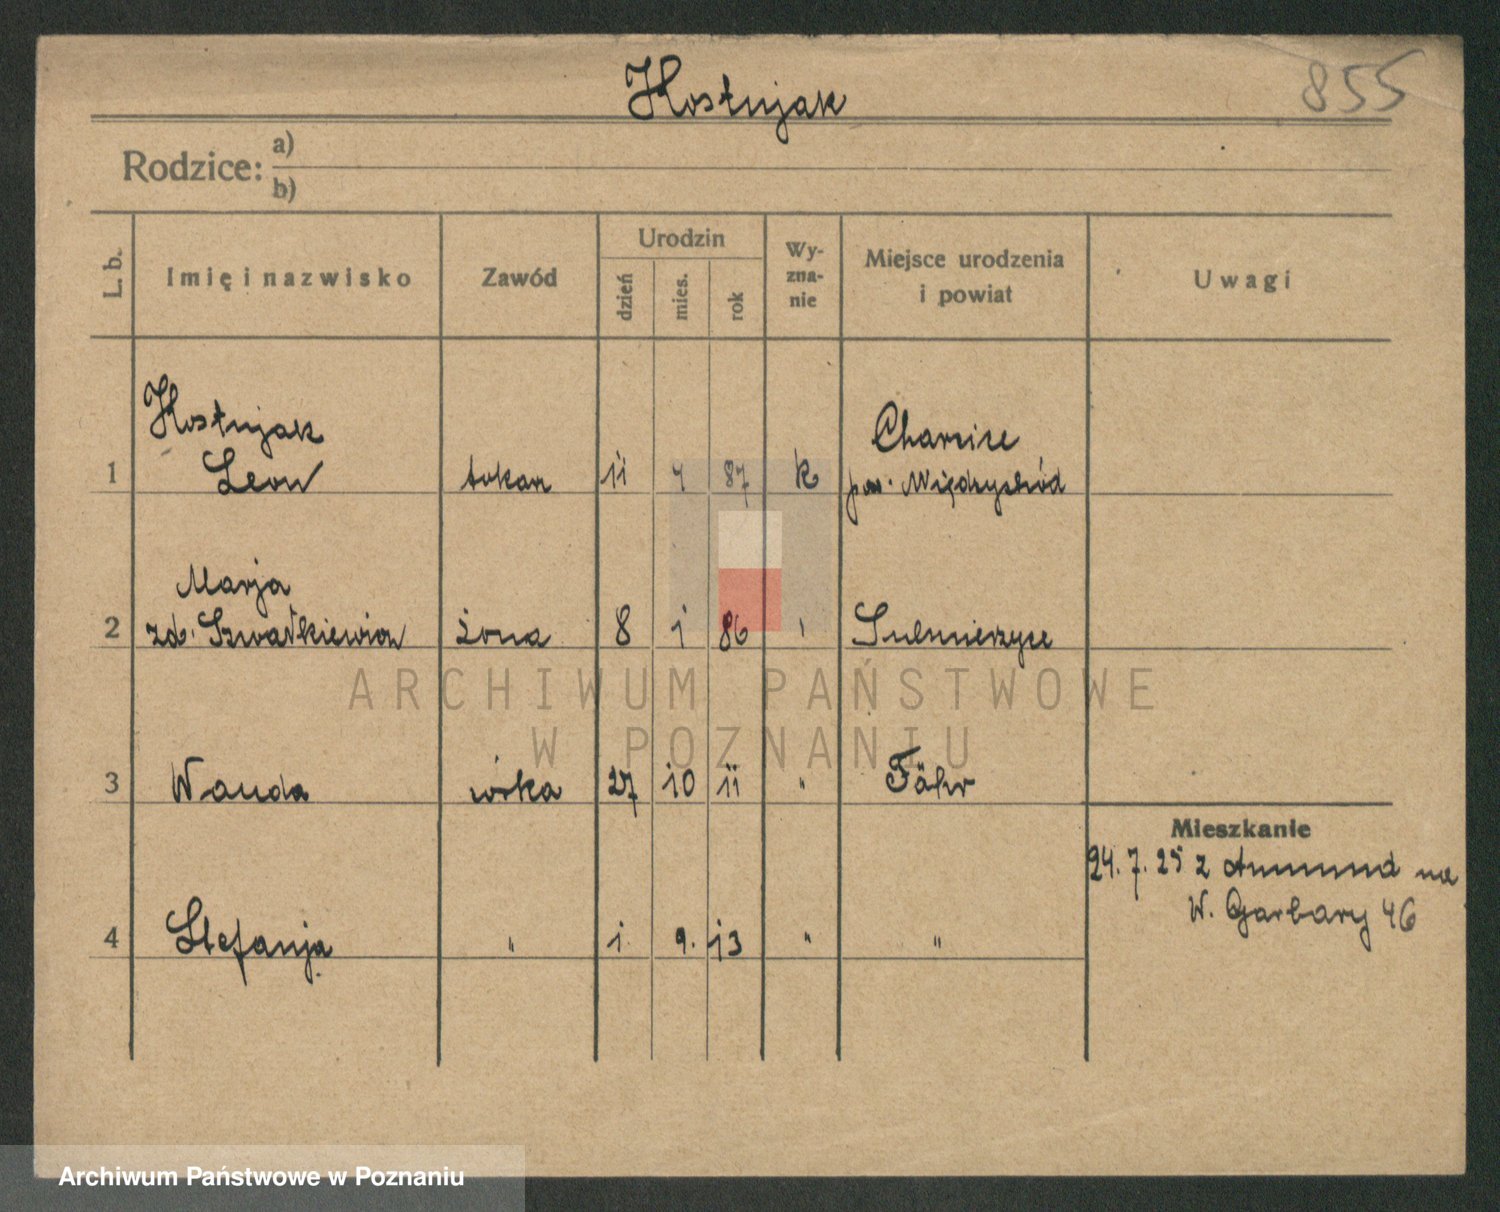 Hostnjak
855
Rodzice: a)
b)
L. b.
Imię i nazwisko
Zawód
Urodzin
dzień
mies.
rok
Wy-
zna-
nie
Miejsce urodzenia
i powiat
Uwagi
Hostnjak
1 Leon tokarz 11 4 87 k
Charcice
pow. Międzychód
Marja
2 zd. Szwałkiewicz żona 8 1 86 " Sulmierzyce
3 Wanda córka 27 10 11 " Föhr
4 Stefanja " 1. 9. 13 " "
Mieszkanie
24. 7. 25 z na
W. Garbary 46
ARCHIWUM PAŃSTWOWE
W POZNANIU
Archiwum Państwowe w Poznaniu